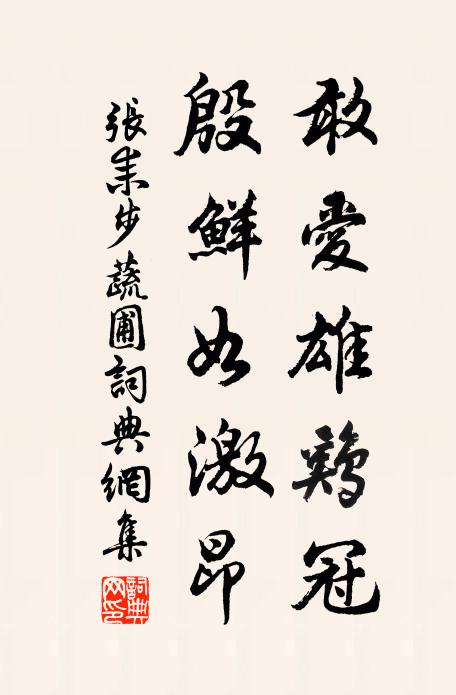 敢愛雄鷄冠
殷鮮如激昂
張耒步蔬圃詞典網集
詞典网印